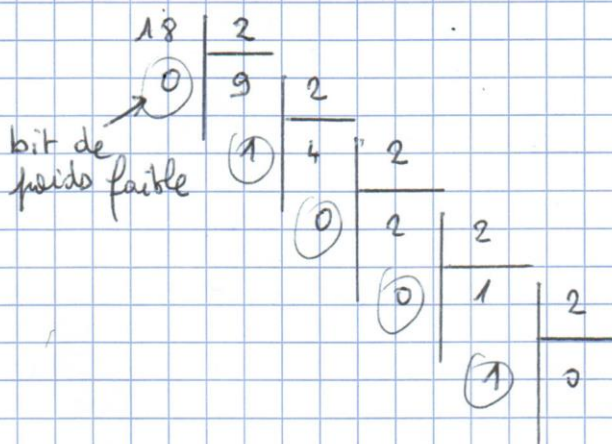 18 2
0 9 2
bit de
poids faible
1 4 2
0 2 2
0 1 2
1 0